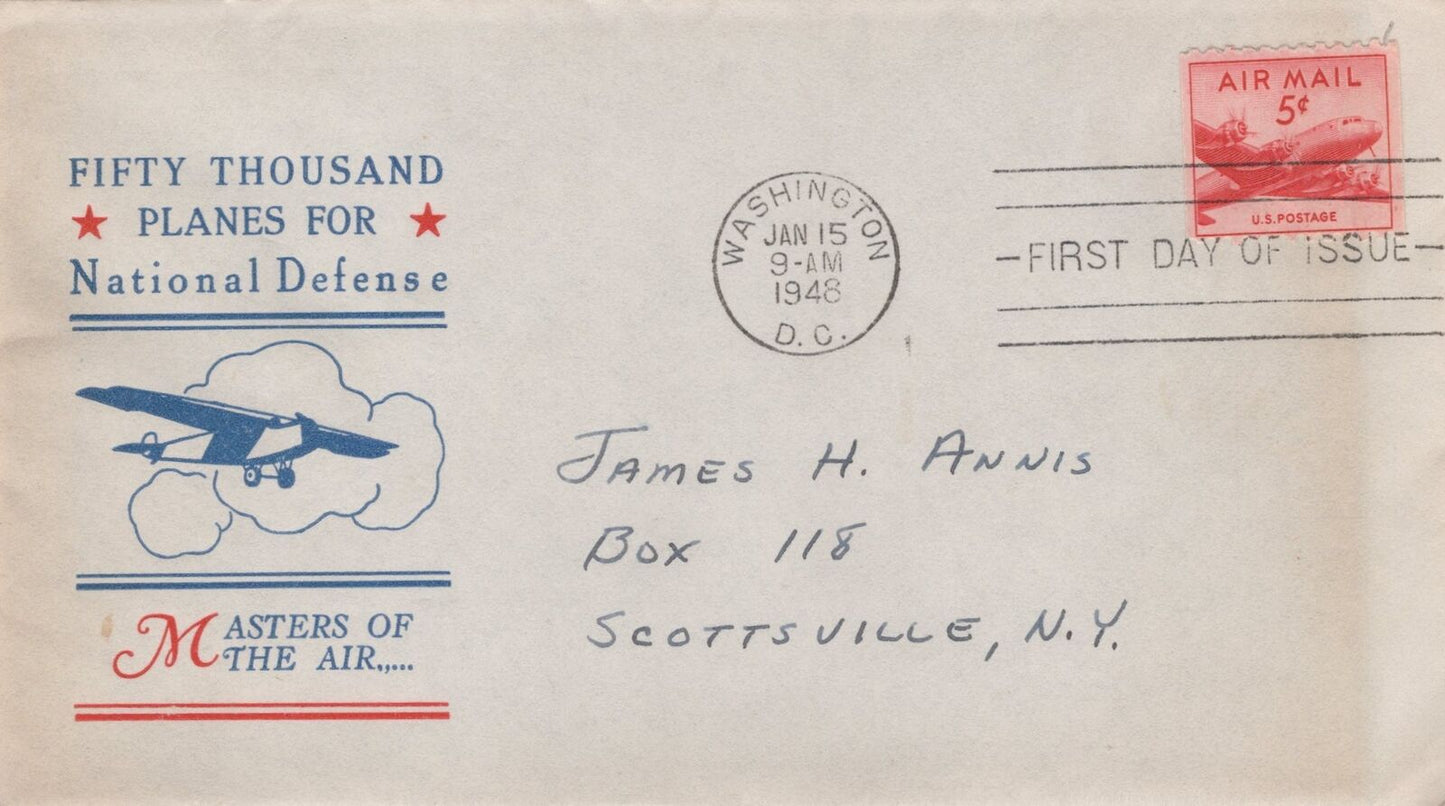 FIFTY THOUSAND
PLANES FOR
National Defense
MASTERS OF
THE AIR.,...
WASHINGTON
JAN 15
9-AM
1948
D.C.
AIR MAIL
5¢
U.S.POSTAGE
—FIRST DAY OF ISSUE—
JAMES H. ANNIS
BOX 118
SCOTTSVILLE, N.Y.